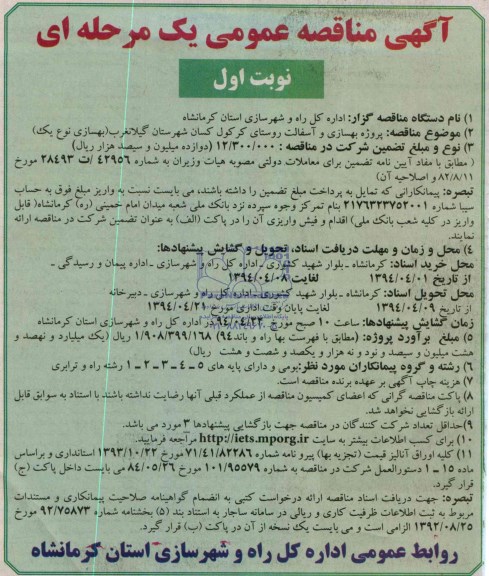 آگهی مناقصه عمومی یک مرحله ای
نوبت اول
۱) نام دستگاه مناقصه گزار: اداره کل راه و شهرسازی استان کرمانشاه
۲) موضوع مناقصه: پروژه بهسازی و آسفالت روستای کرکول کسان شهرستان گیلانغرب(بهسازی نوع یک)
۳) نوع و مبلغ تضمین شرکت در مناقصه : ۱۲/۳۰۰/۰۰۰ (دوازده میلیون و سیصد هزار ریال)
( مطابق با مفاد آیین نامه تضمین برای معاملات دولتی مصوبه هیات وزیران به شماره ۴۲۹۵۶ /ت ۲۸۴۹۳ مورخ
۸۲/۸/۱۱ و اصلاحیه آن)
تبصره: پیمانکارانی که تمایل به پرداخت مبلغ تضمین را داشته باشند، می بایست نسبت به واریز مبلغ فوق به حساب
سیبا شماره ۲۱۷۶۲۳۷۵۲۰۰۱ بنام تمرکز وجوه سپرده نزد بانک ملی شعبه میدان امام خمینی (ره) کرمانشاه( قابل
واریز در کلیه شعب بانک ملی) اقدام و فیش واریزی آن را در پاکت (الف) به عنوان تضمین شرکت در مناقصه ارائه
نمایند.
۴) محل و زمان و مهلت دریافت اسناد، تحویل و گشایش پیشنهادها:
محل خرید اسناد: کرمانشاه ـ بلوار شهید کشوری ـ اداره کل راه و شهرسازی ـ اداره پیمان و رسیدگی ـ
از تاریخ ۱۳۹۴/۰۴/۰۱ لغایت ۱۳۹۴/۰۴/۰۸
محل تحویل اسناد: کرمانشاه ـ بلوار شهید کشوری ـ اداره کل راه و شهرسازی ـ دبیرخانه
از تاریخ ۱۳۹۴/۰۴/۰۹ لغایت پایان وقت اداری مورخ ۱۳۹۴/۰۴/۲۱
زمان گشایش پیشنهادها: ساعت ۱۰ صبح مورخ ۹۴/۰۴/۲۲ در اداره کل راه و شهرسازی استان کرمانشاه
۵) مبلغ برآورد پروژه: (مطابق با فهرست بها راه و باند۹۴) ۱/۹۰۸/۳۹۹/۱۶۸ ریال (یک میلیارد و نهصد و
هشت میلیون و سیصد و نود و نه هزار و یکصد و شصت و هشت ریال)
۶) رشته و گروه پیمانکاران مورد نظر:بومی و دارای پایه های ۵ ـ ۴ ـ ۳ ـ ۲ ـ ۱ رشته راه و ترابری
۷) هزینه چاپ آگهی بر عهده برنده مناقصه است.
۸) پاکت مناقصه گرانی که اعضای کمیسیون مناقصه از عملکرد قبلی آنها رضایت نداشته باشند با استناد به سوابق قابل
ارائه بازگشایی نخواهد شد.
۹)حداقل تعداد شرکت کنندگان در مناقصه جهت بازگشایی پیشنهادها ۳ مورد می باشد.
۱۰) برای کسب اطلاعات بیشتر به سایت http://iets.mporg.ir مراجعه فرمایید.
۱۱) کلیه اوراق آنالیز قیمت (تجزیه بها) پیرو نامه شماره ۷۱/۴۱/۸۲۲۸۶ مورخ ۱۳۹۳/۱۰/۲۲ استانداری و براساس
ماده ۱۵ ـ ۱ دستورالعمل شرکت در مناقصه به شماره ۱۰۱/۹۵۵۷۹ مورخ ۸۴/۰۵/۲۶ می بایست داخل پاکت (ج)
قرار گیرد.
تبصره: جهت دریافت اسناد مناقصه ارائه درخواست کتبی به انضمام گواهینامه صلاحیت پیمانکاری و مستندات
مربوط به ثبت اطلاعات ظرفیت کاری و ریالی در سامانه ساجار به استناد بند (۵) بخشنامه شماره ۹۲/۷۵۸۷۳ مورخ
۱۳۹۲/۰۸/۲۵ الزامی است و می بایست یک نسخه از آن در پاکت (ب) قرار گیرد.
روابط عمومی اداره کل راه و شهرسازی استان کرمانشاه